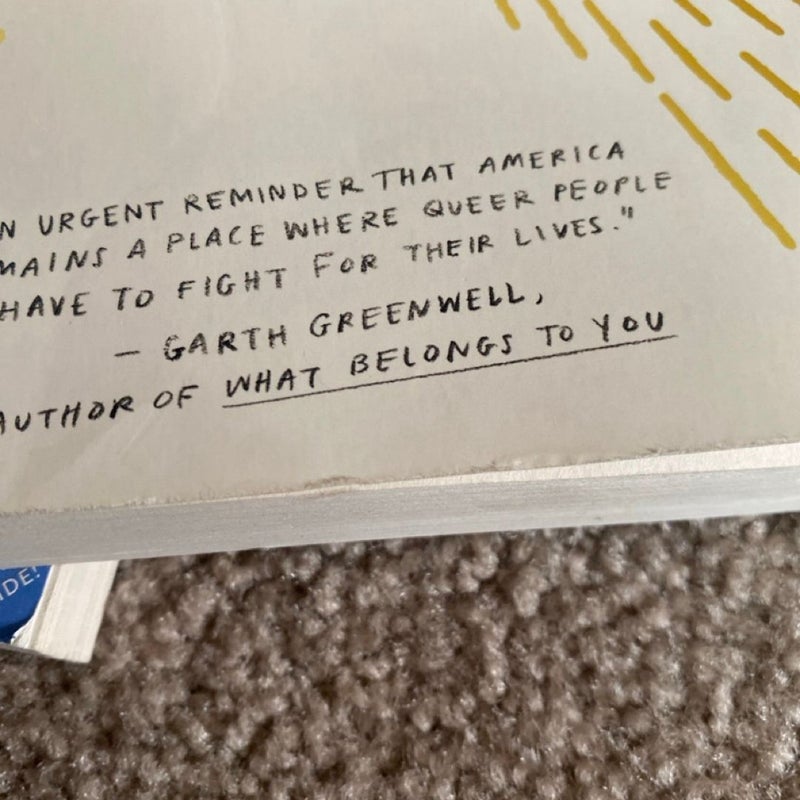 N URGENT REMINDER THAT AMERICA
MAINS A PLACE WHERE QUEER PEOPLE
HAVE TO FIGHT FOR THEIR LIVES."
— GARTH GREENWELL,
AUTHOR OF WHAT BELONGS TO YOU
IDE!